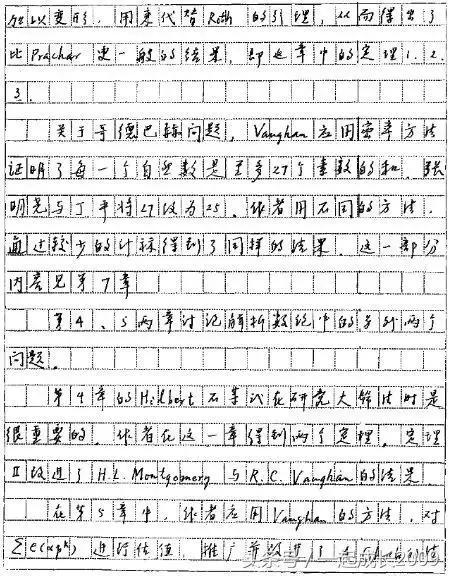 加以变形，用来代替Roth的引理，从而得出了
比Prachar更一般的结果，即这章中的定理1.2.
3.
关于哥德巴赫问题，Vaughan应用密率方法
证明了每一个自然数是至多27个素数的和，张
明尧与丁平将27改为25。作者用不同的方法，
通过较少的计算得到了同样的结果，这一部分
内容见第7章
第4、5两章讨论解析数论中的另外两个
问题。
第4章的Hilbert不等式在研究大筛法时是
很重要的，作者在这一章得到两个定理，定理
II改进了H.L.Montgomery与R.C.Vaughan的结果
在第5章中，作者应用Vaughan的方法，对
∑e(αpᵏ)进行估值，推广并改进了
头条号/一起成长2009